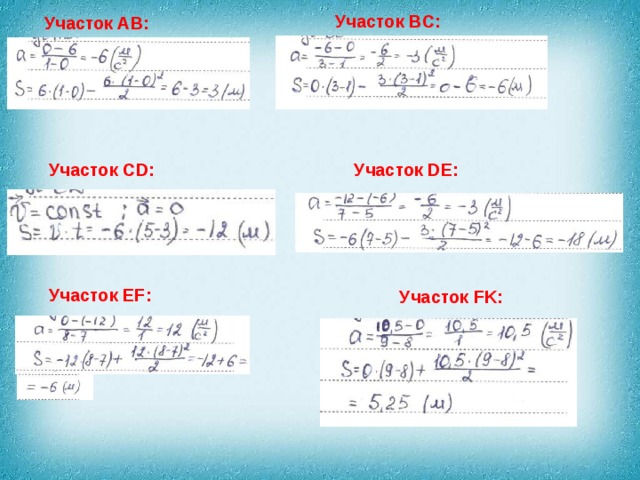 Участок AB:
a = (0 – 6)/(1-0) = –6 (м/с²)
S = 6·(1-0) – (6·(1-0)²)/2 = 6 – 3 = 3 (м)
Участок BC:
a = (-6-0)/(3-1) = -6/2 = –3 (м/с²)
S = 0·(3-1) – (3·(3-1)²)/2 = 0 – 6 = –6 (м)
Участок CD:
v⃗ = const ; a⃗ = 0
S = v·t = –6·(5-3) = –12 (м)
Участок DE:
a = (-12-(-6))/(7-5) = -6/2 = –3 (м/с²)
S = –6(7-5) – (3·(7-5)²)/2 = –12 – 6 = –18 (м)
Участок EF:
a = (0-(-12))/(8-7) = 12/1 = 12 (м/с²)
S = –12(8-7) + (12·(8-7)²)/2 = –12 + 6 =
= –6 (м)
Участок FK:
a = (10,5-0)/(9-8) = 10,5/1 = 10,5 (м/с²)
S = 0·(9-8) + (10,5·(9-8)²)/2 =
= 5,25 (м)